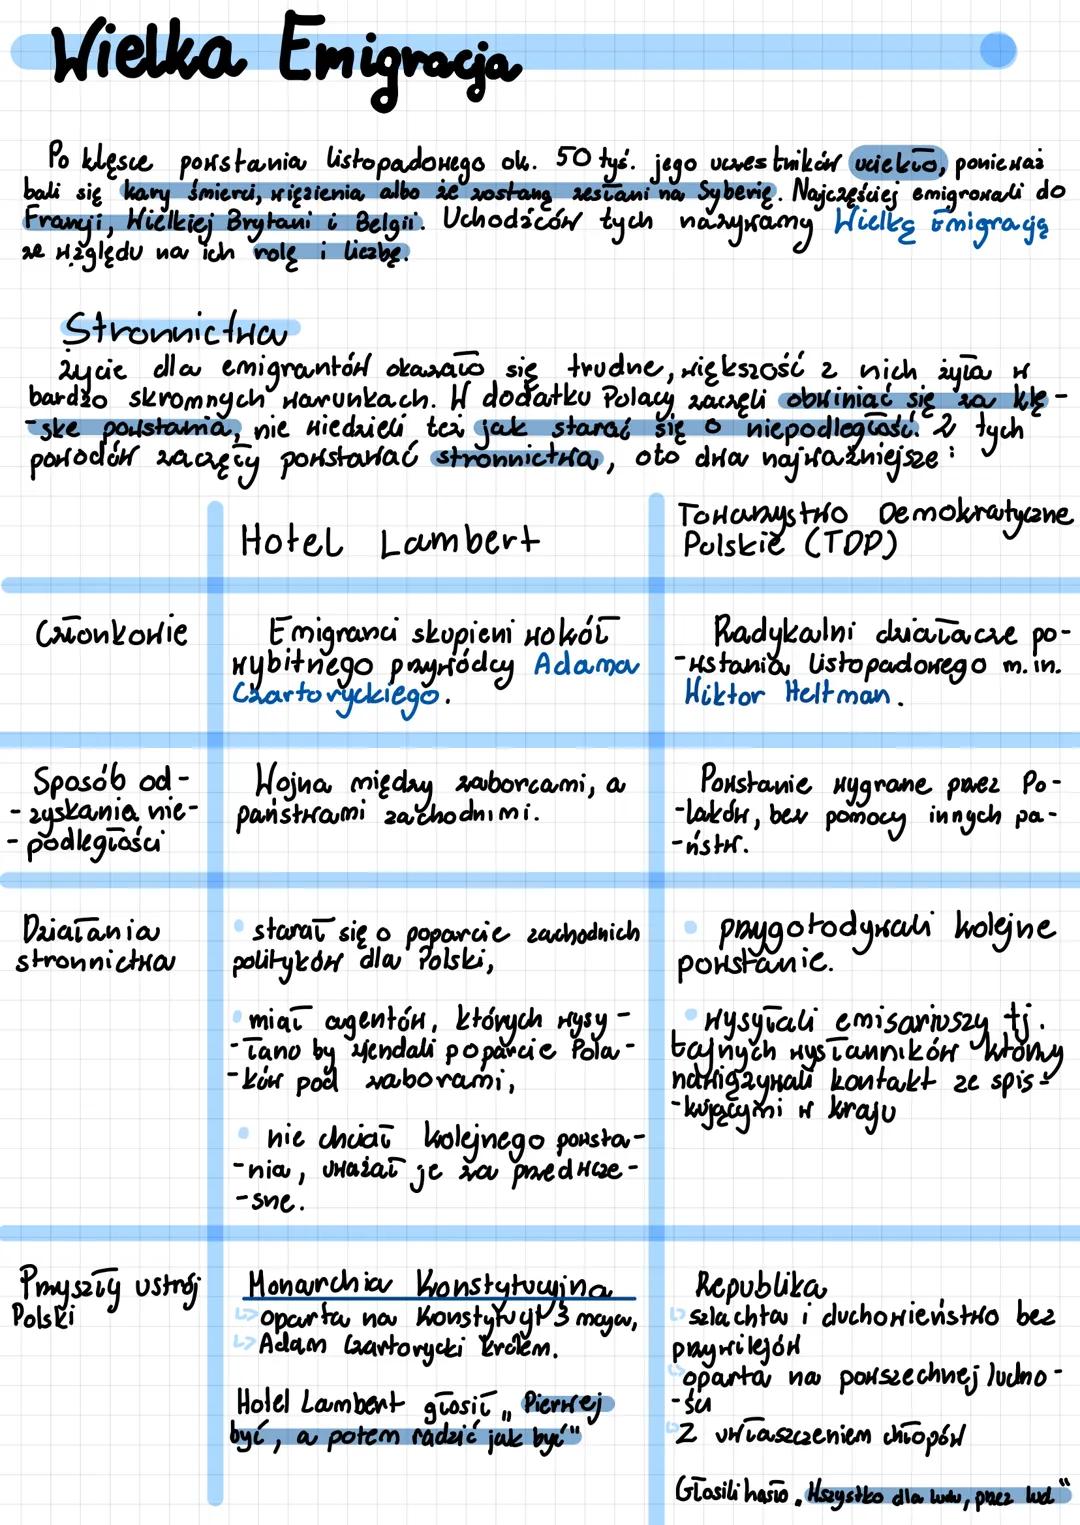 Wielka Emigracja
Po klęsce powstania listopadowego ok. 50 tyś. jego uczestników uciekło, ponieważ
bali się kary śmierci, więzienia albo że zostaną zesłani na Syberię. Najczęściej emigrowali do
Francji, Wielkiej Brytani i Belgii. Uchodźców tych nazywamy Wielką Emigracją
ze względu na ich rolę i liczbę.
Stronnictwa
życie dla emigrantów okazało się trudne, większość z nich żyła w
bardzo skromnych warunkach. W dodatku Polacy zaczęli obwiniać się za klę-
-skę powstania, nie wiedzieli też jak starać się o niepodległość. Z tych
powodów zaczęły powstawać stronnictwa, oto dwa najważniejsze:
Hotel Lambert
Towarzystwo Demokratyczne
Polskie (TDP)
Członkowie
Emigranci skupieni wokół
wybitnego przywódcy Adama
Czartoryckiego.
Radykalni działacze po-
-wstania listopadowego m.in.
Wiktor Heltman.
Sposób od-
-zyskania nie-
-podległości
Wojna między zaborcami, a
państwami zachodnimi.
Powstanie wygrane przez Po-
-laków, bez pomocy innych pa-
-ństw.
Działania
stronnictwa
• starał się o poparcie zachodnich
polityków dla Polski,
• miał agentów, których wysy-
-łano by zjendali poparcie Pola-
-ków pod zaborami,
• nie chciał kolejnego powsta-
-nia, uważał je za przedwcze-
-sne.
• przygotodywali kolejne
powstanie.
• wysyłali emisariuszy tj.
tajnych wysłanników którzy
nawiązywali kontakt ze spis-
-kującymi w kraju
Przyszły ustrój
Polski
Monarchia Konstytucyjna
↳ oparta na Konstytucji 3 maja,
↳ Adam Czartorycki królem.
Hotel Lambert głosił „Pierwej
być, a potem radzić jak być"
Republika
↳ szlachta i duchowieństwo bez
przywilejów
↳ oparta na powszechnej ludno-
-ści
↳ Z uwłaszczeniem chłopów
Głosili hasło „Wszystko dla ludu, przez lud"